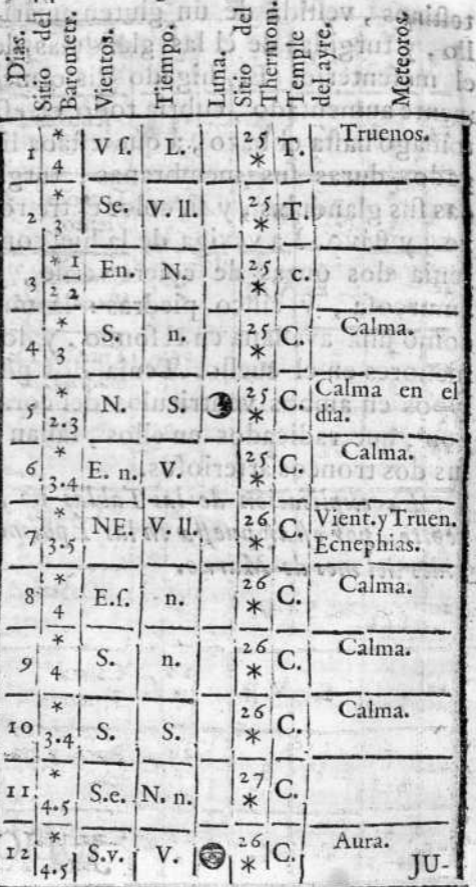 Dias. Sitio del Barometr. Vientos. Tiempo. Luna. Sitio del Thermom. Temple del ayre. Meteoros.
1 * 4 V ſ. L. 25 * T. Truenos.
2 * 3 Se. V. ll. 25 * T.
3 * 1 2 2 En. N. 25 * c.
4 * 3 S. n. 25 * C. Calma.
5 * 2.3 N. S. 25 * C. Calma en el
dia.
6 * 3.4 E. n. V. 25 * C. Calma.
7 * 3.5 NE. V. ll. 26 * C. Vient. y Truen.
Ecnephias.
8 * 4 E.ſ. n. 26 * C. Calma.
9 * 4 S. n. 26 * C. Calma.
10 * 3.4 S. S. 26 * C. Calma.
11 * 4.5 S.e. N. n. 27 * C.
12 * 4.5 S.v. V. 26 * C. Aura.
JU-